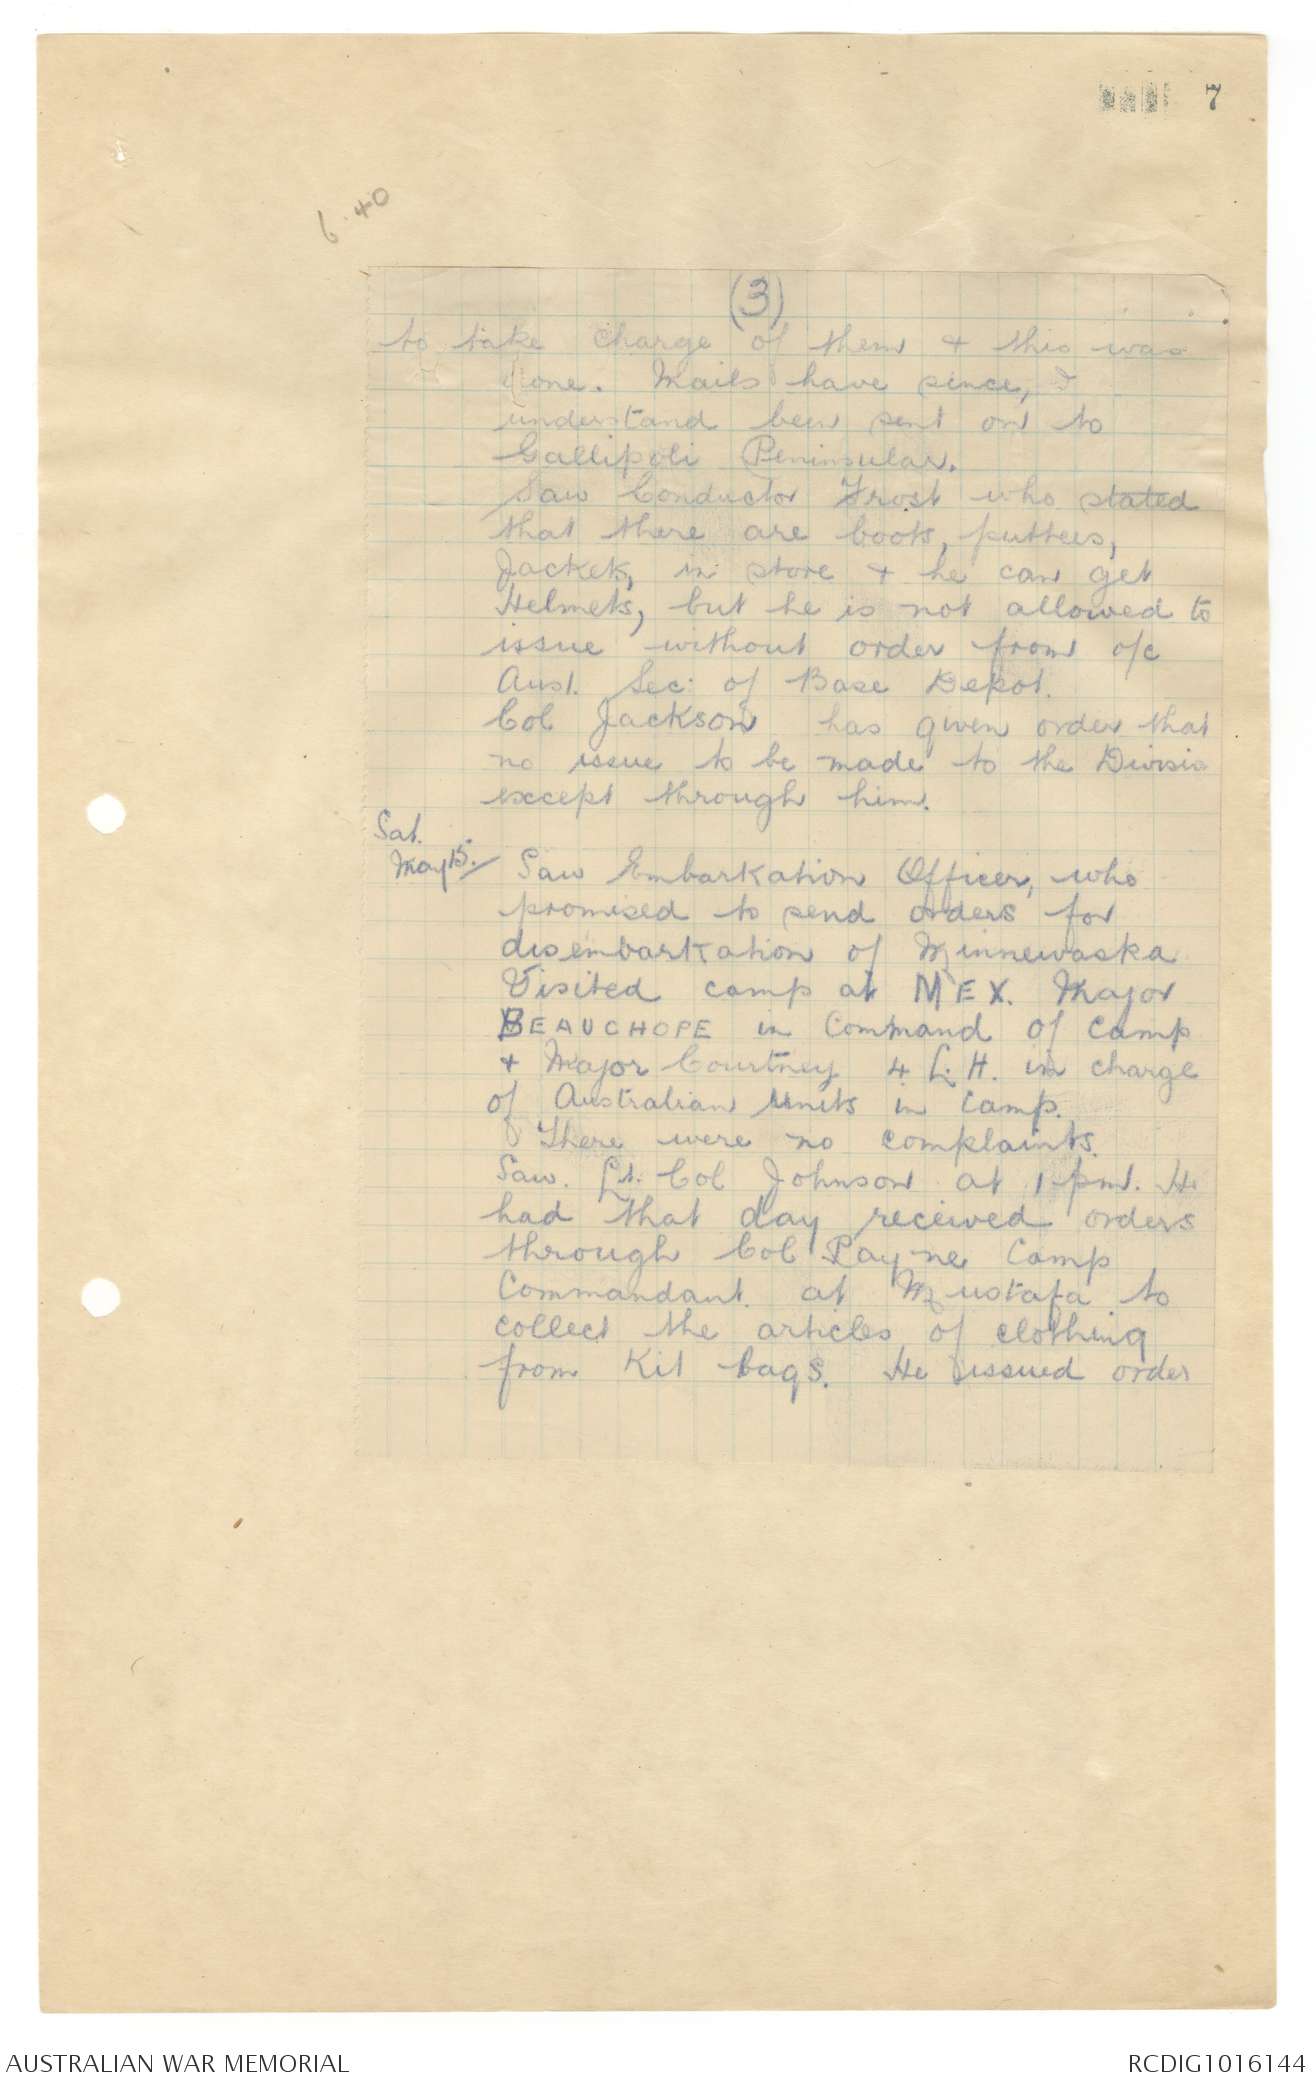 7
6.40
(3)
to take charge of them & this was
done. Mails have since, I
understand been sent on to
Gallipoli Peninsular.
Saw Conductor Frost who stated
that there are boots, puttees,
Jackets, in store & he can get
Helmets, but he is not allowed to
issue without order from o/c
Aust. Sec: of Base Depot.
Col Jackson has given order that
no issue to be made to the Divisio
except through him.
Sat.
May 15. Saw Embarkation Officer, who
promised to send orders for
disembarkation of Minnewaska
Visited camp at MEX. Major
BEAUCHOPE in Command of Camp
& Major Courtney 4 L.H. in charge
of Australian Units in Camp.
There were no complaints.
Saw. Lt. Col Johnson at 1 pm. He
had that day received orders
through Col Payne Camp
Commandant at Mustafa to
collect the articles of clothing
from Kit bags. He issued order
AUSTRALIAN WAR MEMORIAL
RCDIG1016144